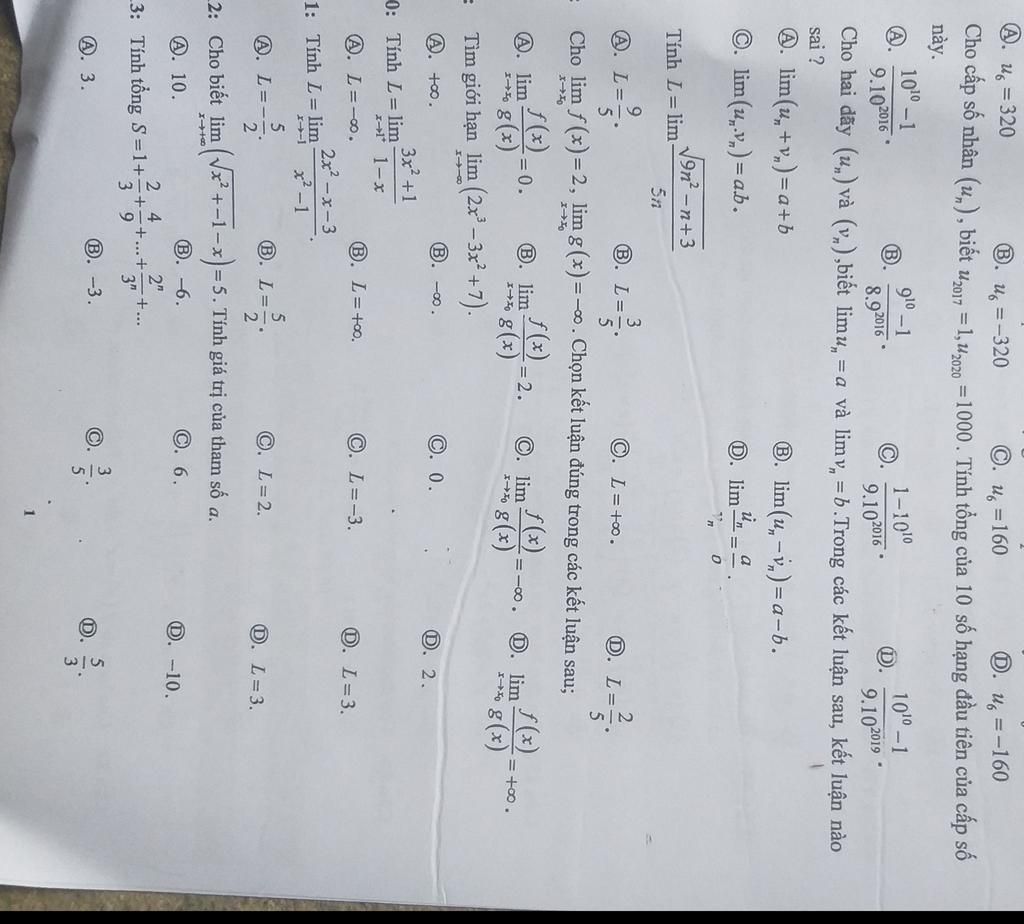 Ⓐ. u₆ = 320 Ⓑ. u₆ = −320 Ⓒ. u₆ = 160 Ⓓ. u₆ = −160
Cho cấp số nhân (uₙ), biết u₂₀₁₇ = 1, u₂₀₂₀ = 1000. Tính tổng của 10 số hạng đầu tiên của cấp số
này.
Ⓐ. (10¹⁰ − 1)/(9.10²⁰¹⁶). Ⓑ. (9¹⁰ − 1)/(8.9²⁰¹⁶). Ⓒ. (1 − 10¹⁰)/(9.10²⁰¹⁶). Ⓓ. (10¹⁰ − 1)/(9.10²⁰¹⁹).
Cho hai dãy (uₙ) và (vₙ), biết lim uₙ = a và lim vₙ = b. Trong các kết luận sau, kết luận nào
sai ?
Ⓐ. lim(uₙ + vₙ) = a + b Ⓑ. lim(uₙ − vₙ) = a − b.
Ⓒ. lim(uₙ.vₙ) = a.b. Ⓓ. lim uₙ/vₙ = a/b.
Tính L = lim √(9n² − n + 3)/(5n)
Ⓐ. L = 9/5. Ⓑ. L = 3/5. Ⓒ. L = +∞. Ⓓ. L = 2/5.
: Cho lim_{x→x₀} f(x) = 2, lim_{x→x₀} g(x) = −∞. Chọn kết luận đúng trong các kết luận sau;
Ⓐ. lim_{x→x₀} f(x)/g(x) = 0. Ⓑ. lim_{x→x₀} f(x)/g(x) = 2. Ⓒ. lim_{x→x₀} f(x)/g(x) = −∞. Ⓓ. lim_{x→x₀} f(x)/g(x) = +∞.
: Tìm giới hạn lim_{x→−∞} (2x³ − 3x² + 7).
Ⓐ. +∞. Ⓑ. −∞. Ⓒ. 0. Ⓓ. 2.
0: Tính L = lim_{x→1⁺} (3x² + 1)/(1 − x)
Ⓐ. L = −∞. Ⓑ. L = +∞. Ⓒ. L = −3. Ⓓ. L = 3.
1: Tính L = lim_{x→−1} (2x² − x − 3)/(x² − 1).
Ⓐ. L = −5/2. Ⓑ. L = 5/2. Ⓒ. L = 2. Ⓓ. L = 3.
.2: Cho biết lim_{x→+∞} (√(x² + −1) − x) = 5. Tính giá trị của tham số a.
Ⓐ. 10. Ⓑ. −6. Ⓒ. 6. Ⓓ. −10.
.3: Tính tổng S = 1 + 2/3 + 4/9 + ... + 2ⁿ/3ⁿ + ...
Ⓐ. 3. Ⓑ. −3. Ⓒ. 3/5. Ⓓ. 5/3.
1